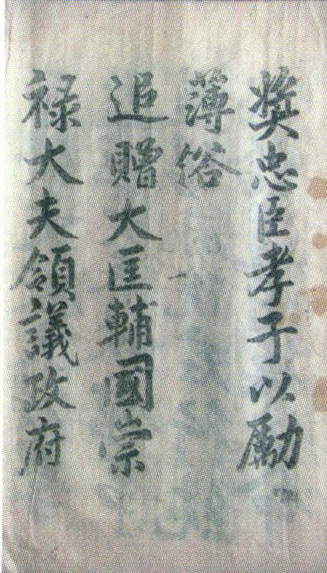 奬忠臣孝子以勵
薄俗
追贈大匡輔國崇
禄大夫領議政府